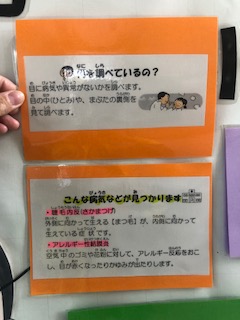 何を調べているの？
目に病気や異常がないかを調べます。
目の中(ひとみ)や、まぶたの裏側を
見て調べます。
こんな病気などが見つかります
・睫毛内反(さかまつげ)
外側に向かって生える【まつ毛】が、内側に向かって
生えている症状です。
・アレルギー性結膜炎
空気中のゴミや花粉に対して、アレルギー反応をおこ
し、目が赤くなったりかゆみが出たりします。